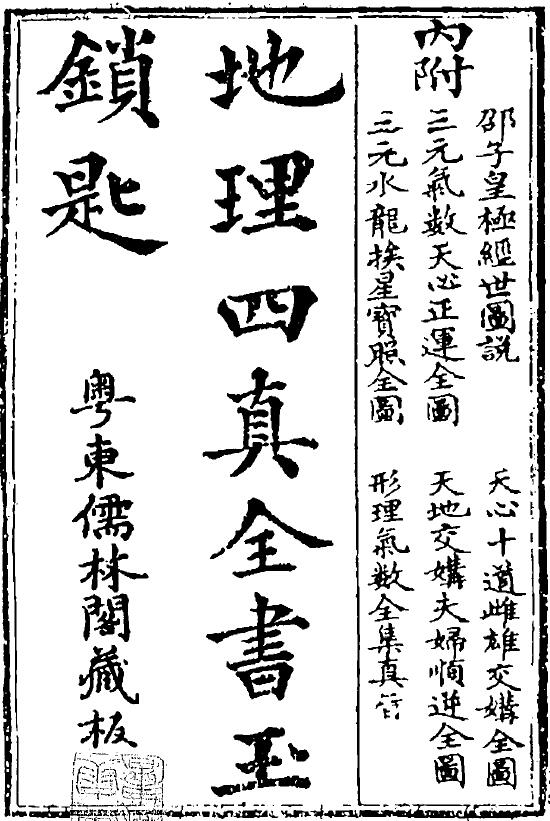 內附
邵子皇極經世圖説 天心十道雌雄交媾全圖
三元氣數天心正運全圖 天地交媾夫婦順逆全圖
三元水龍挨星寶照全圖 形理氣數全集真
地理四真全書玉
鎖匙
粤東儒林閣藏板